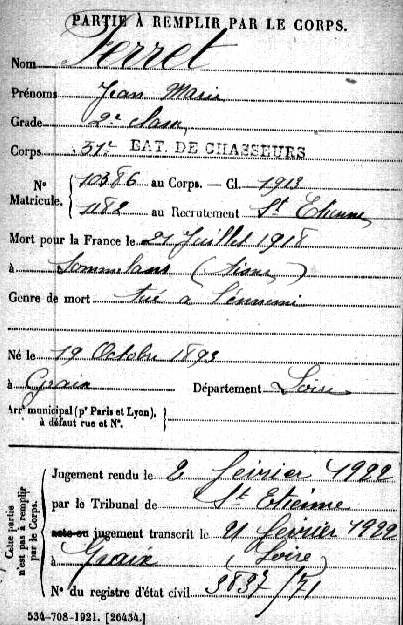 PARTIE À REMPLIR PAR LE CORPS.
Nom Ferret
Prénoms Jean Marie
Grade 2e classe
Corps 31e BAT. DE CHASSEURS
N° Matricule. 10386 au Corps. — Cl. 1913
1182 au Recrutement St Etienne
Mort pour la France le 21 Juillet 1918
à Sommelans (Aisne)
Genre de mort tué à l'ennemi
Né le 19 Octobre 1893
à Graix Département Loire
Arrt municipal (pr Paris et Lyon), à défaut rue et N°.
Cette partie n'est pas à remplir par le Corps.
Jugement rendu le 2 février 1922
par le Tribunal de St Etienne
acte ou jugement transcrit le 21 février 1922
à Graix (Loire)
N° du registre d'état civil 3837/71
534-708-1921. [26434.]